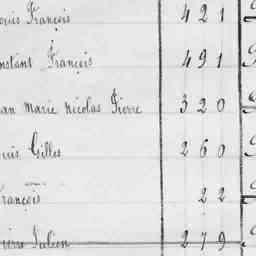 ouis François 421
nstant François 491
an Marie Nicolas Pierre 320
uis Gilles 260
rançois 22
ierre Julien 279